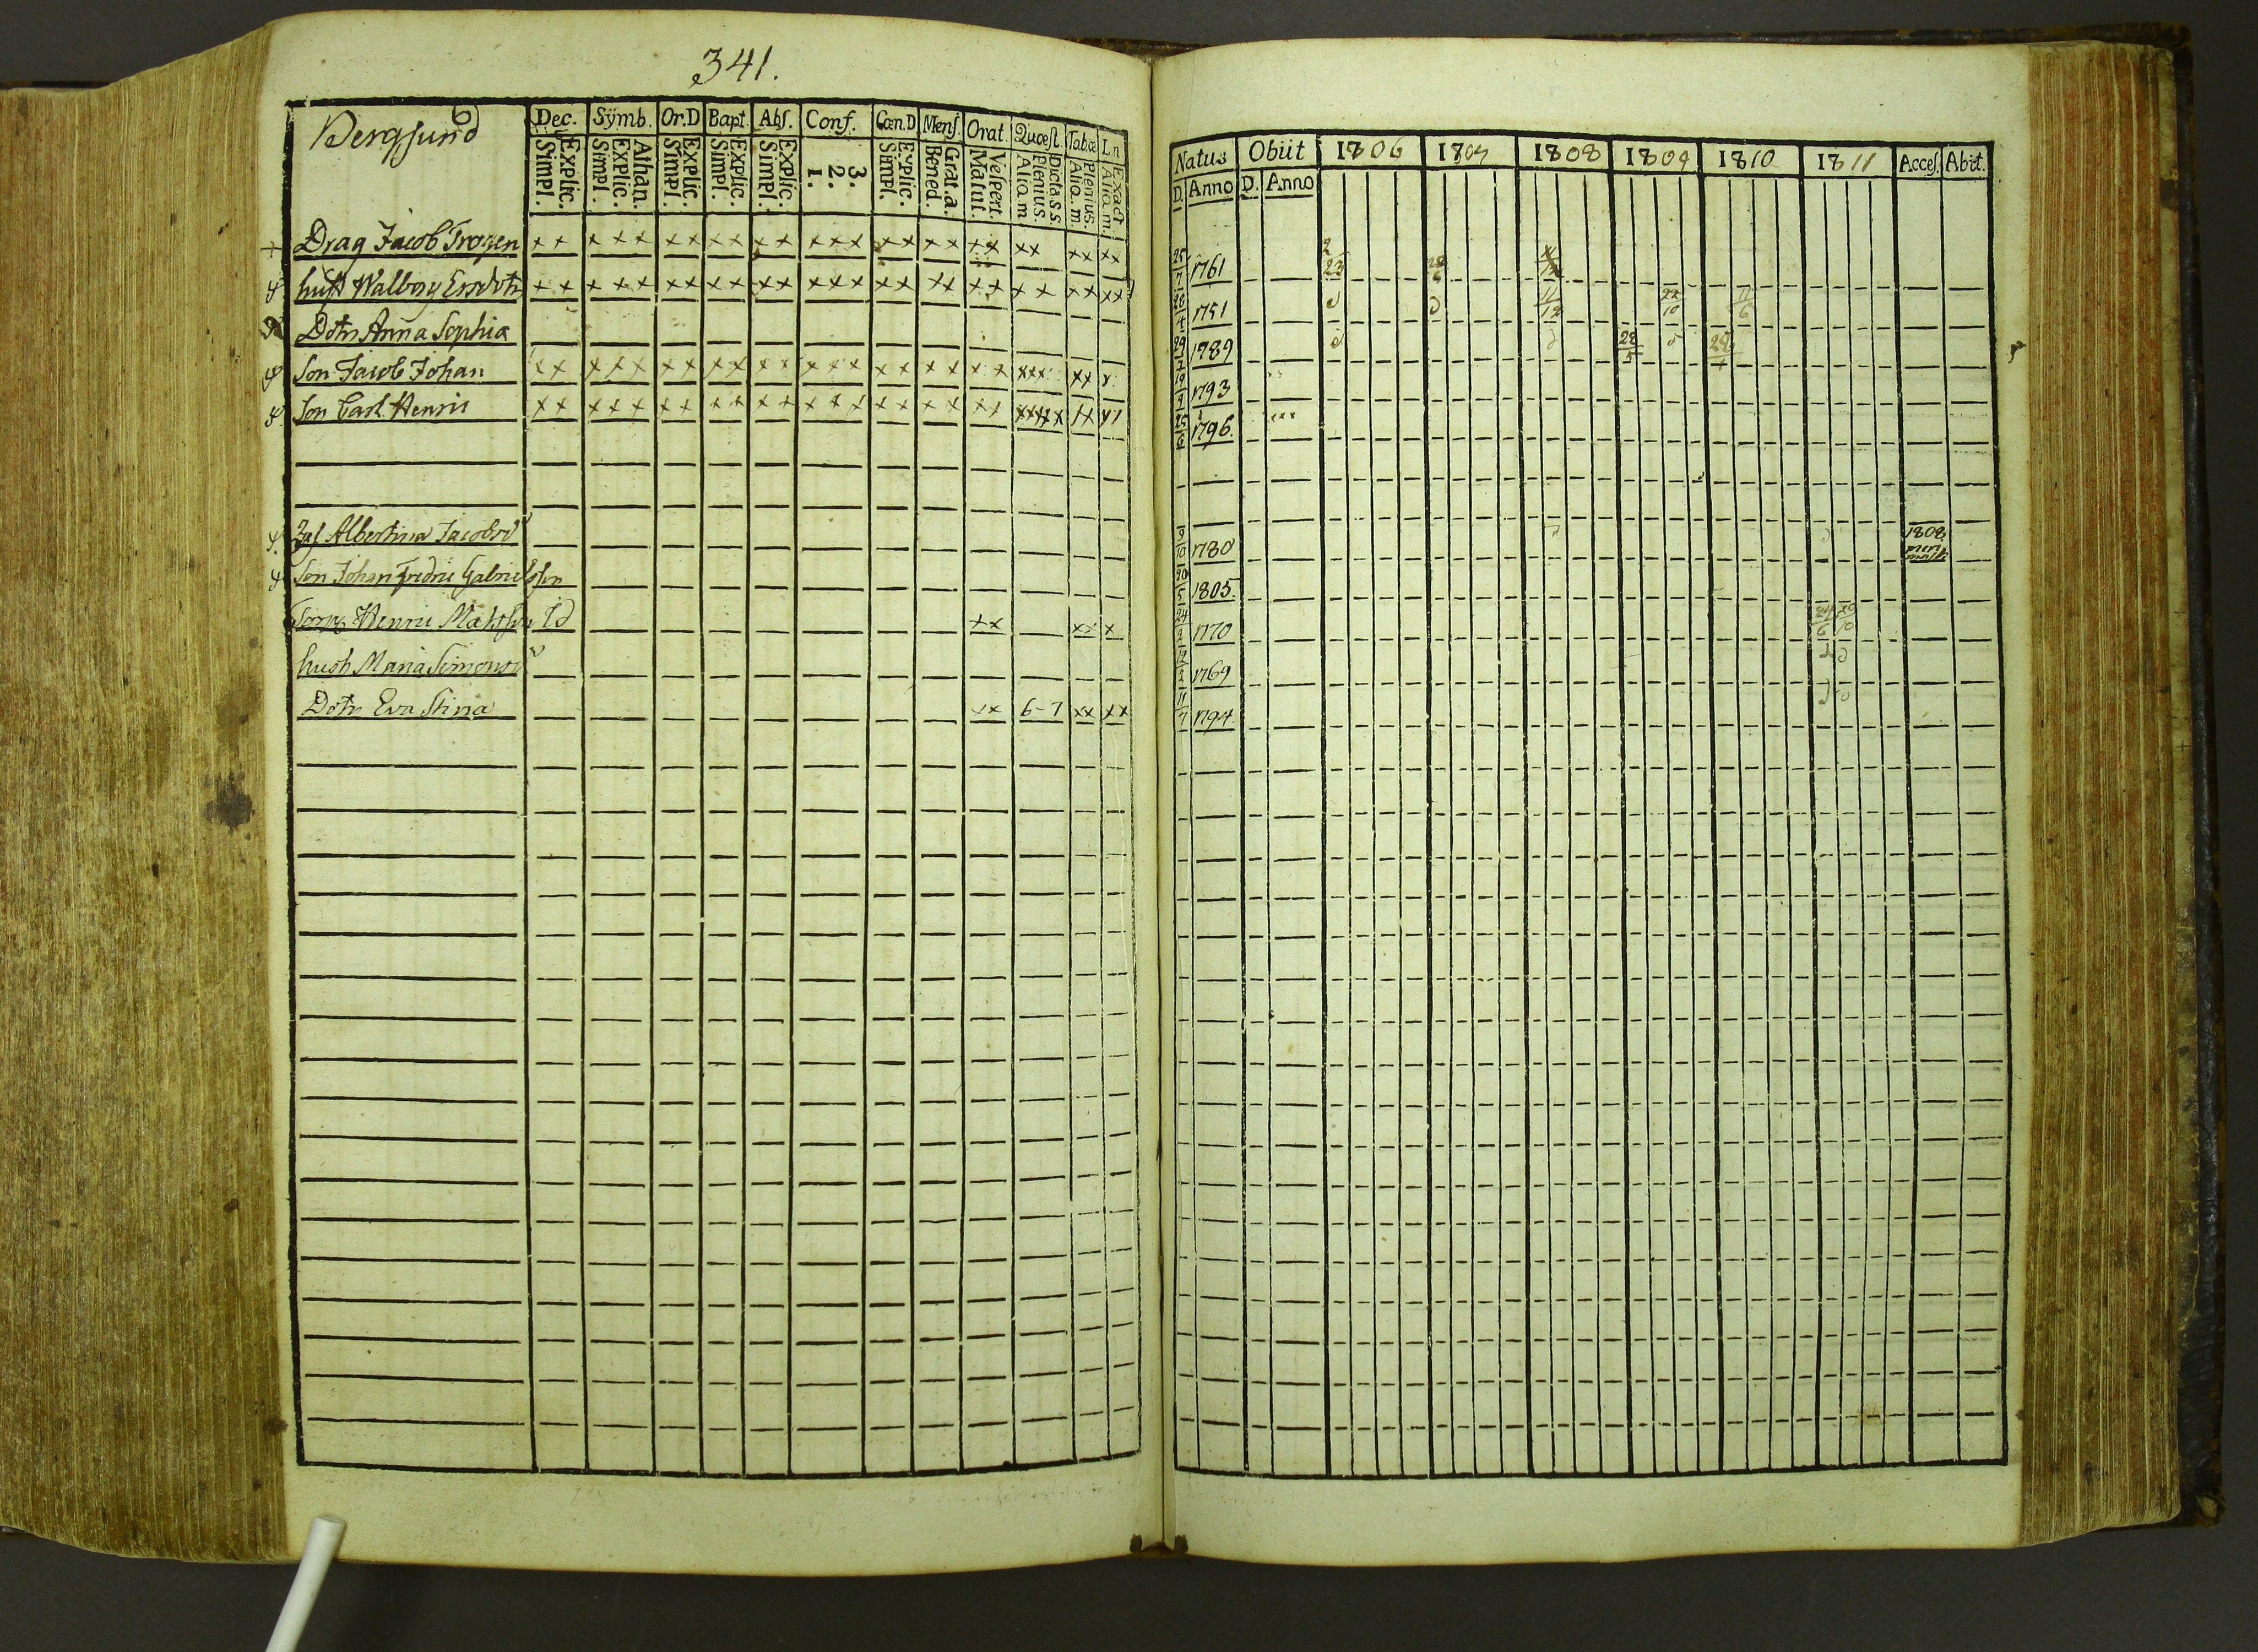 341.
Bergsund
Dec. Symb. Or.D Bapt. Abſ. Conf. Cœn.D Menſ. Orat. Quœſt. Tabœ Ln
Explic. Simpl. Athan. Explic. Simpl. Explic. Simpl. Explic. Simpl. Explic. Simpl. 3. 2. 1. Explic. Simpl. Grat.a. Bened. Veſpert. Matut. Dicta.s.s. Plenius. Aliq.m Plenius. Aliq.m Exact Aliq.m.
Natus Obiit 1806 1807 1808 1809 1810 1811 Acceſ. Abit.
D. Anno D. Anno
Drag Jacob Trogen x x x x x x x x x x x x x x x x x x x x x x x x x x x 25/7 1761
hust Walborg Ersdotr x x x x x x x x x x x x x x x x x x x x x x x x x x x 28/4 1751 11/12 22/10 11/6
Dotr Anna Sophia 1789 28/5
Son Jacob Johan x x x x x x x x x x x x x x x x x x x x x x x x x x x 19/9 1793
Son Carl Henric x x x x x x x x x x x x x x x x x x x x x x x x x x x x x 25/6 1796.
Albertina Jacobsd 9/10 1780 1808
Son Johan Fredric Gabrielsson 20/5 1805.
Henric Matsson x x x x x 1770
hust Maria Simonsd 1769
Dotr Eva Stina x x 6-7 x x x x 11/7 1794.